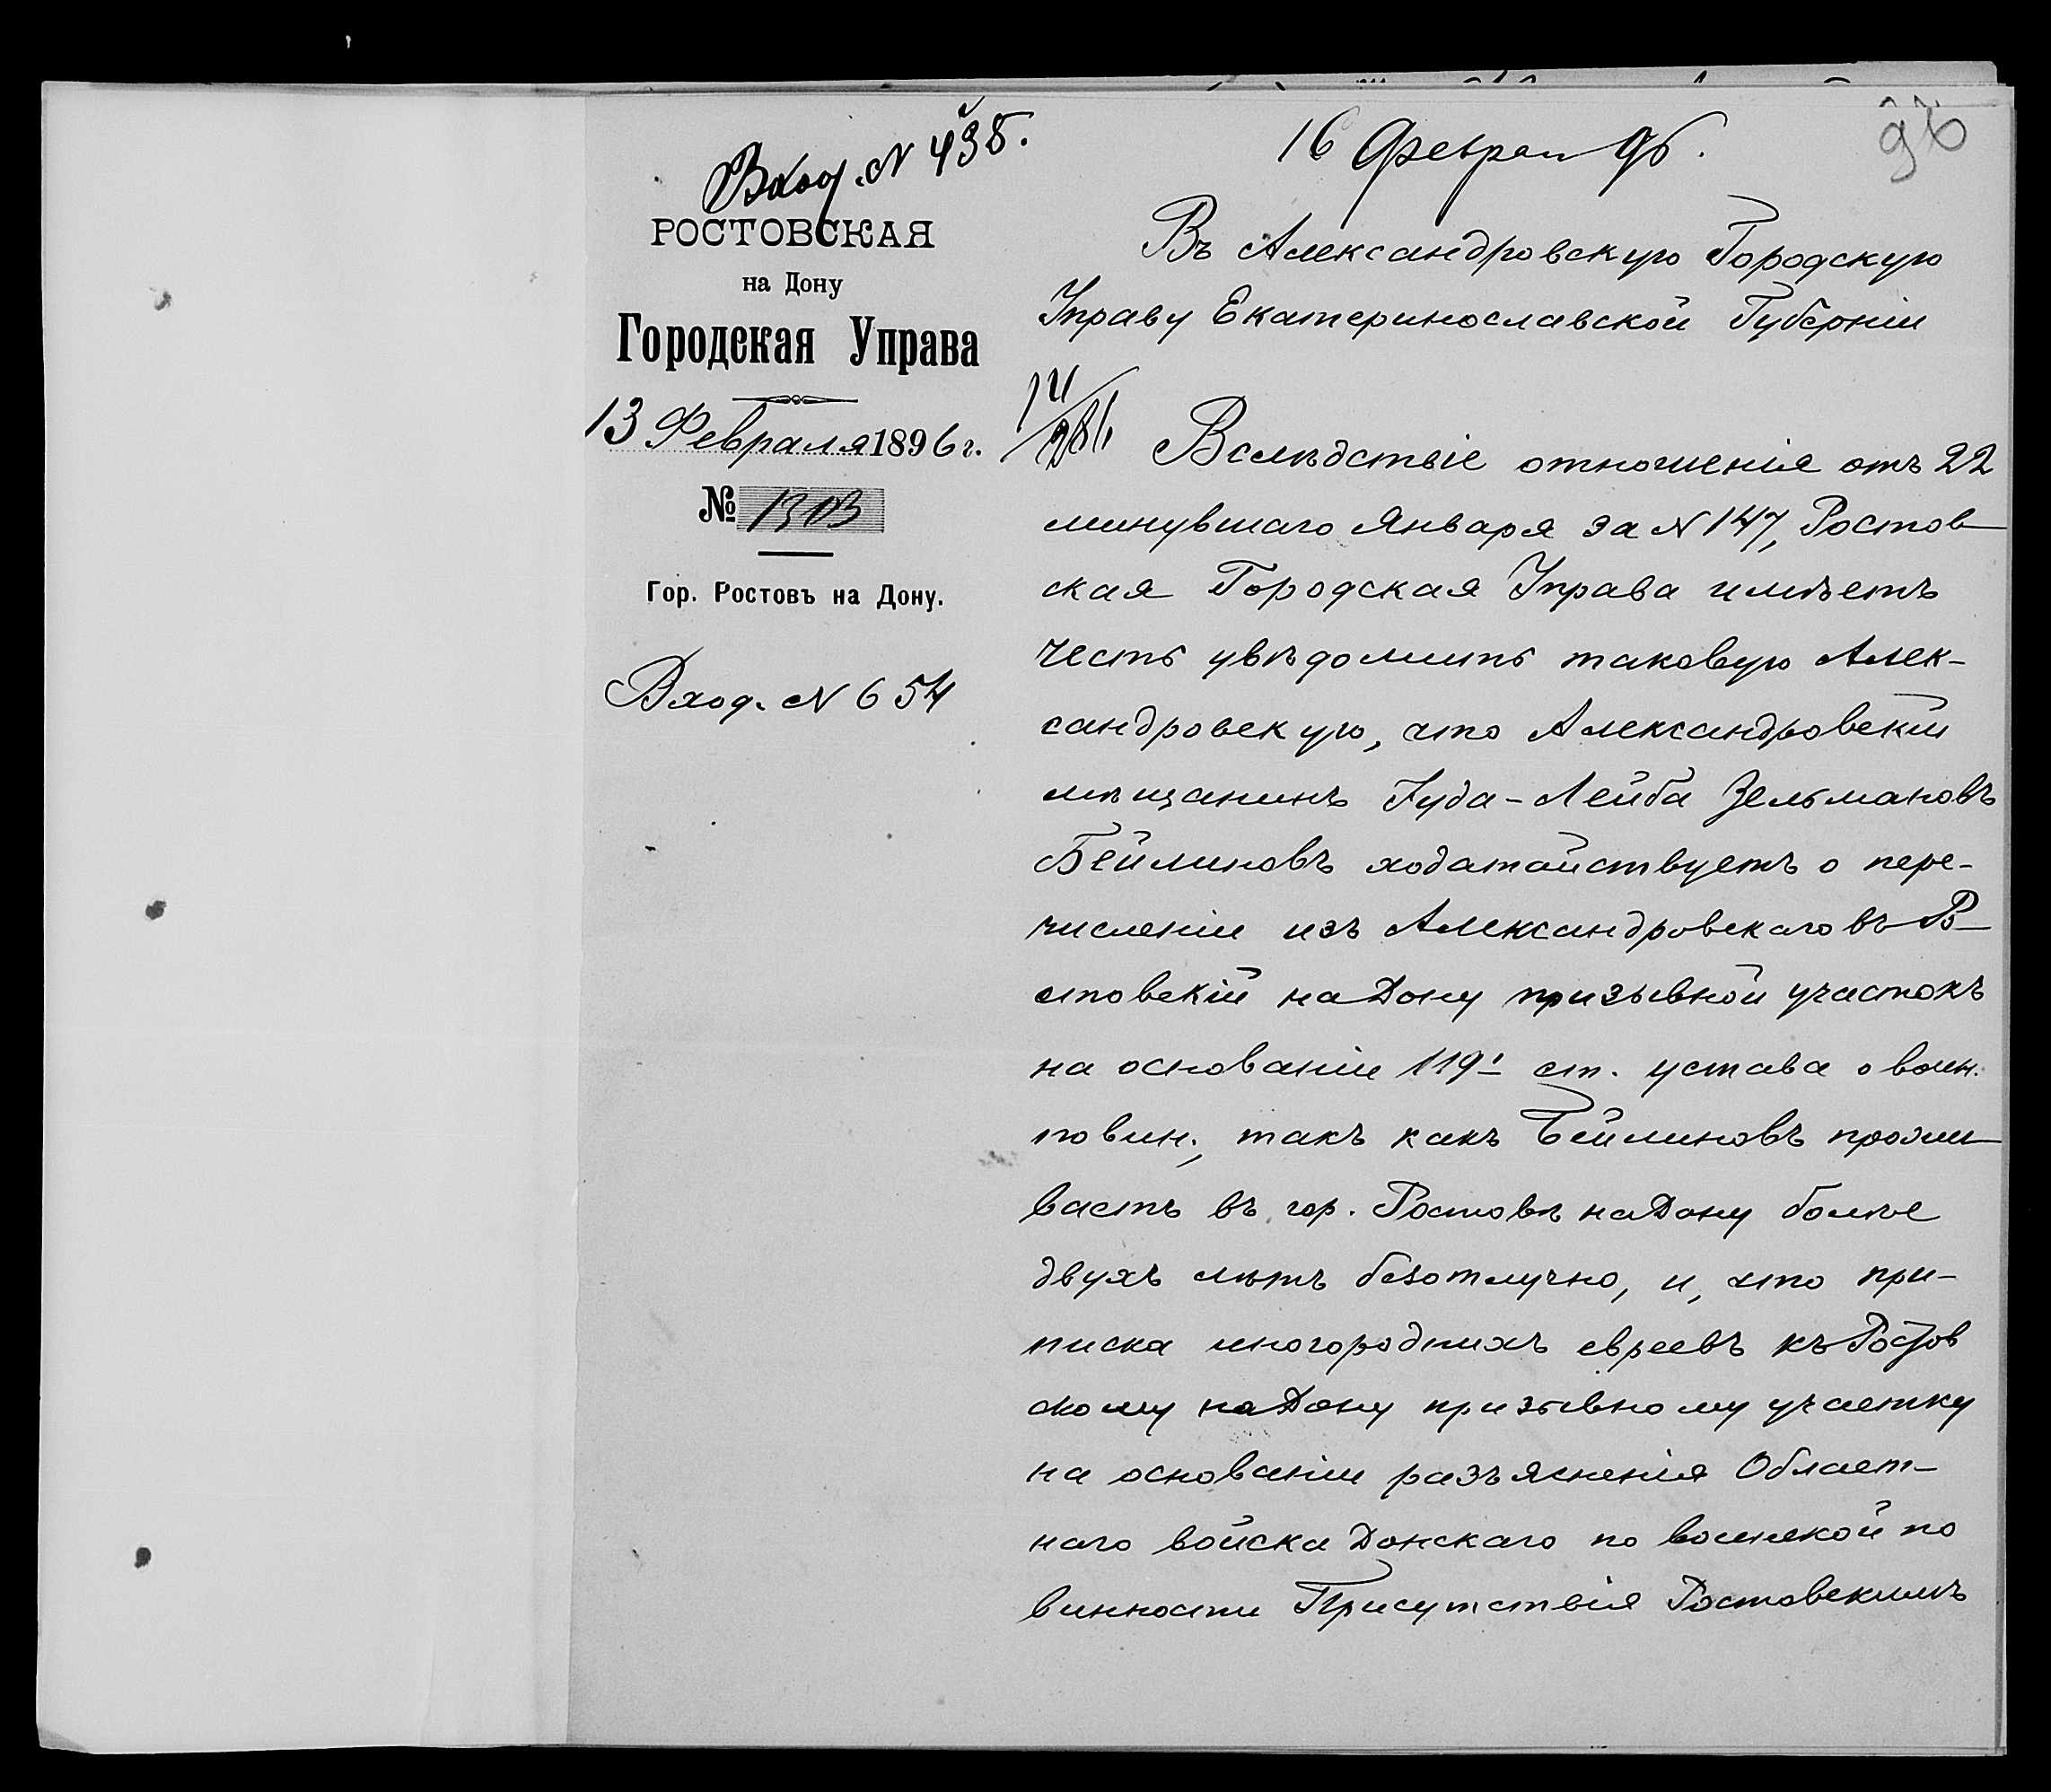 Вход. N 438.
РОСТОВСКАЯ
на Дону
Городская Управа
13 Февраля 1896 г.
№ 1303
Гор. Ростовъ на Дону.
Вход. N 654
16 Феврал 96.
96
Въ Александровскую Городскую
Управу Екатеринославской Губерніи
Вслѣдствіе отношенія отъ 22
минувшаго Января за N 147, Ростов
ская Городская Управа имѣетъ
честь увѣдомить таковую Алек-
сандровскую, что Александровскій
мѣщанинъ Іуда-Лейба Зельмановъ
Бейлиновъ ходатайствуетъ о пере-
численіи изъ Александровскаго въ Ро-
стовскій на Дону призывной участокъ
на основаніи 119 ст. устава о воин.
повин., такъ какъ Бейлиновъ прожи
ваетъ въ гор. Ростовѣ на Дону болѣе
двухъ лѣтъ безотлучно, и, что при-
писка иногороднихъ евреевъ къ Ростов
скому на Дону призывному участку
на основаніи разъясненія Област-
наго войска Донскаго по воинской по
винности Присутствія Ростовскимъ